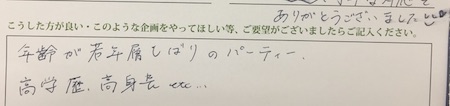 ありがとうございました
こうした方が良い・このような企画をやってほしい等、ご要望がございましたらご記入ください。
年齢が若年層しばりのパーティー.
高学歴、高身長 etc...